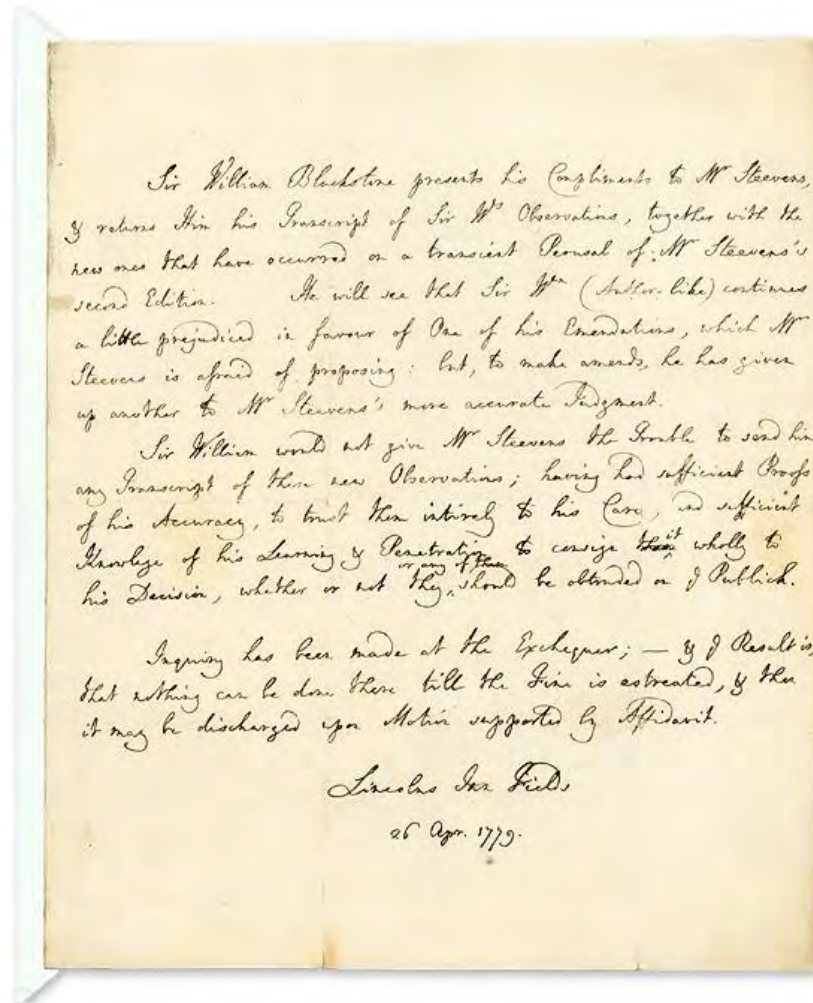 Sir William Blackstone presents his Compliments to Mr Steevens,
& returns Him his Transcript of Sir Wms Observations, together with the
new ones that have occurred on a transient Perusal of Mr Steevens's
second Edition. He will see that Sir Wm (Author-like) continues
a little prejudiced in favour of One of his Emendations, which Mr
Steevens is afraid of proposing: but, to make amends, he has given
up another to Mr Steevens's more accurate Judgment.
Sir William would not give Mr Steevens the Trouble to send him
any Transcript of these new Observations; having had sufficient Proofs
of his Accuracy, to trust them intirely to his Care, and sufficient
Knowlege of his Learning & Penetration to consign it wholly to
his Decision, whether or not they, or any of them should be obtruded on ye Publick.
Inquiry has been made at the Exchequer; — & ye Result is,
that nothing can be done there till the Fine is estreated, & then
it may be discharged upon Motion supported by Affidavit.
Lincolns Inn Fields
26 Apr. 1779.